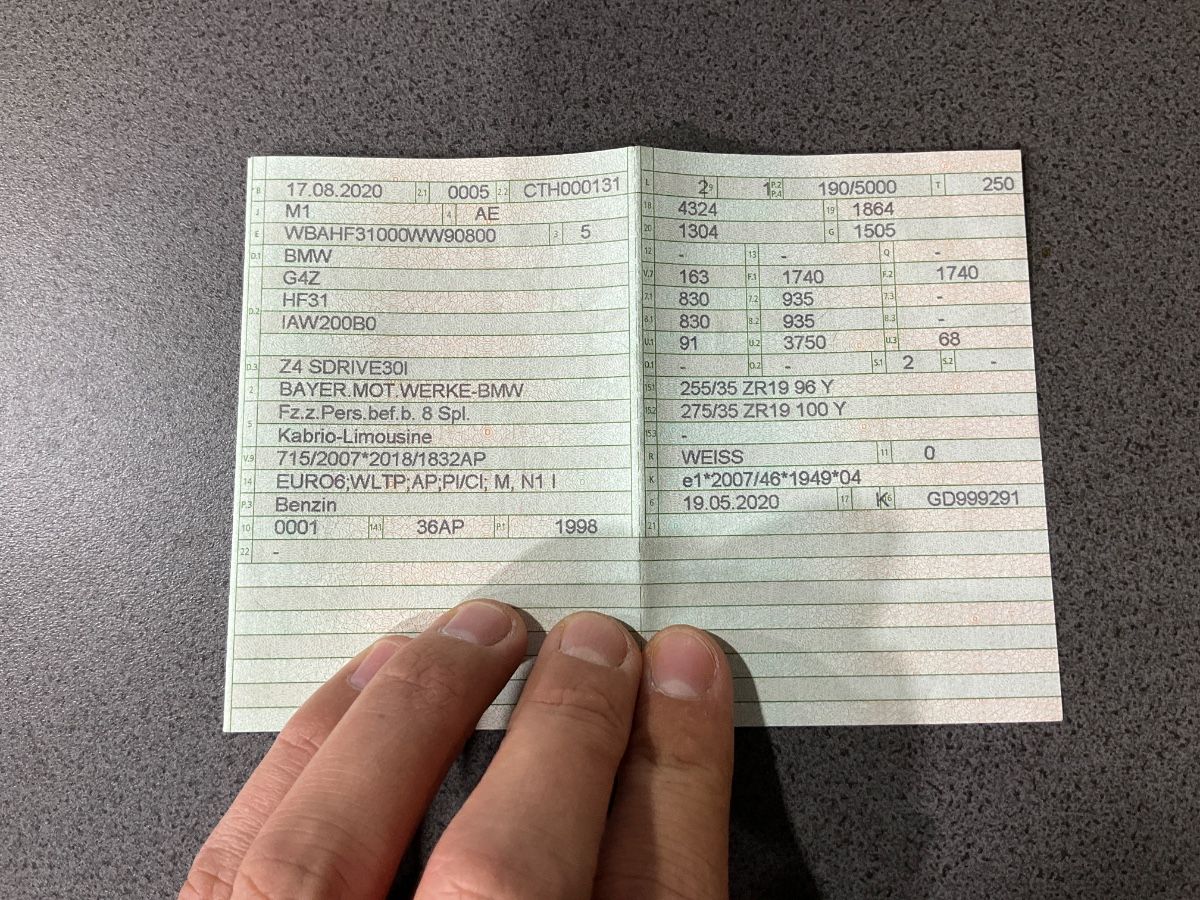 B 17.08.2020 2.1 0005 2.2 CTH000131
J M1 4 AE
E WBAHF31000WW90800 3 5
D.1 BMW
G4Z
D.2 HF31
IAW200B0
D.3 Z4 SDRIVE30I
2 BAYER.MOT.WERKE-BMW
5 Fz.z.Pers.bef.b. 8 Spl.
Kabrio-Limousine
V.9 715/2007*2018/1832AP
14 EURO6;WLTP;AP;PI/CI; M, N1 I
P.3 Benzin
10 0001 14.1 36AP P.1 1998
22 -
L 2 9 1 P.2 P.4 190/5000 T 250
18 4324 19 1864
20 1304 G 1505
12 - 13 - Q -
V.7 163 F.1 1740 F.2 1740
7.1 830 7.2 935 7.3 -
8.1 830 8.2 935 8.3 -
U.1 91 U.2 3750 U.3 68
O.1 - O.2 - S.1 2 S.2 -
15.1 255/35 ZR19 96 Y
15.2 275/35 ZR19 100 Y
15.3 -
R WEISS 11 0
K e1*2007/46*1949*04
6 19.05.2020 17 K 16 GD999291
21